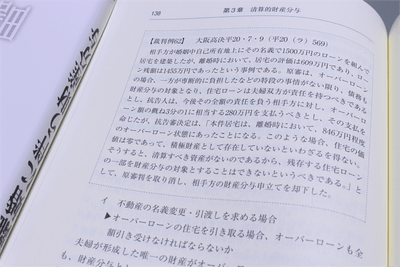 138
第3章 清算的財産分与
【裁判例62】 大阪高決平20・7・9(平20(ラ)569)
相手方が婚姻中自己所有土地にその名義で1500万円のローンを組んで
住宅を建築したが、離婚時において、居宅の評価は609万円であり、ロー
ン残額は1455万円であったという事例である。原審は、オーバーローン
の場合、一方が専断的に負担したなどの特段の事情がない限り、債務も
財産分与の対象となり、住宅ローンは夫婦双方が責任を持つべきである
とし、抗告人は、今後その全額の責任を負う相手方に対し、オーバーロ
ーン額の概ね3分の1に相当する280万円を支払うべきとし、その支払を
命じたが、抗告審決定は、「本件居宅は、離婚時において、846万円程度
のオーバーローン状態にあったことになる。このような場合、住宅の価
値は零であって、積極財産として存在していないといわざるを得ない。
そうすると、清算すべき資産がないのであるから、残存する住宅ローン
の一部を財産分与の対象とすることはできないというべきである。」と
して、原審判を取り消し、相手方の財産分与申立てを却下した。
イ 不動産の名義変更・引渡しを求める場合
▶オーバーローンの住宅を引き取る場合、オーバーローンも全
額引き受けなければならないか
夫婦が形成した唯一の財産がオーバー
も、財産分与と